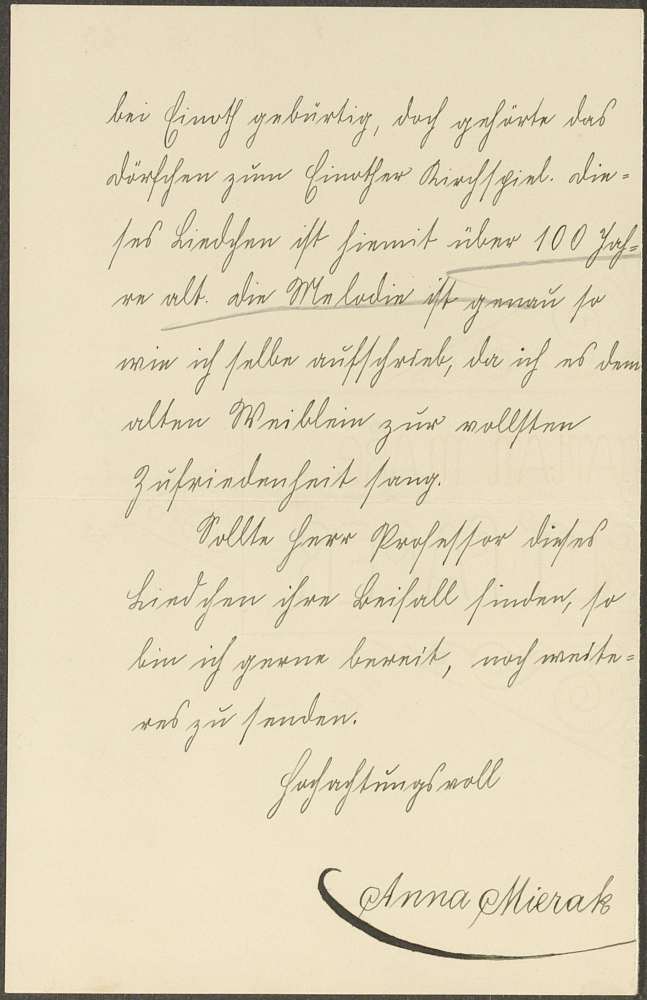 bei Einöth gebürtig, doch gehörte das
Dörfchen zum Einöther Kirchspiel. Die=
ses Liedchen ist hiemit über 100 Jah=
re alt. Die Melodie ist genau so
wie ich selbe aufschrieb, da ich es dem
alten Weiblein zur vollsten
Zufriedenheit sang.
Sollte Herr Professor dieses
Liedchen ihre Beifall finden, so
bin ich gerne bereit, noch weite=
res zu senden.
Hochachtungsvoll
Anna Mierak